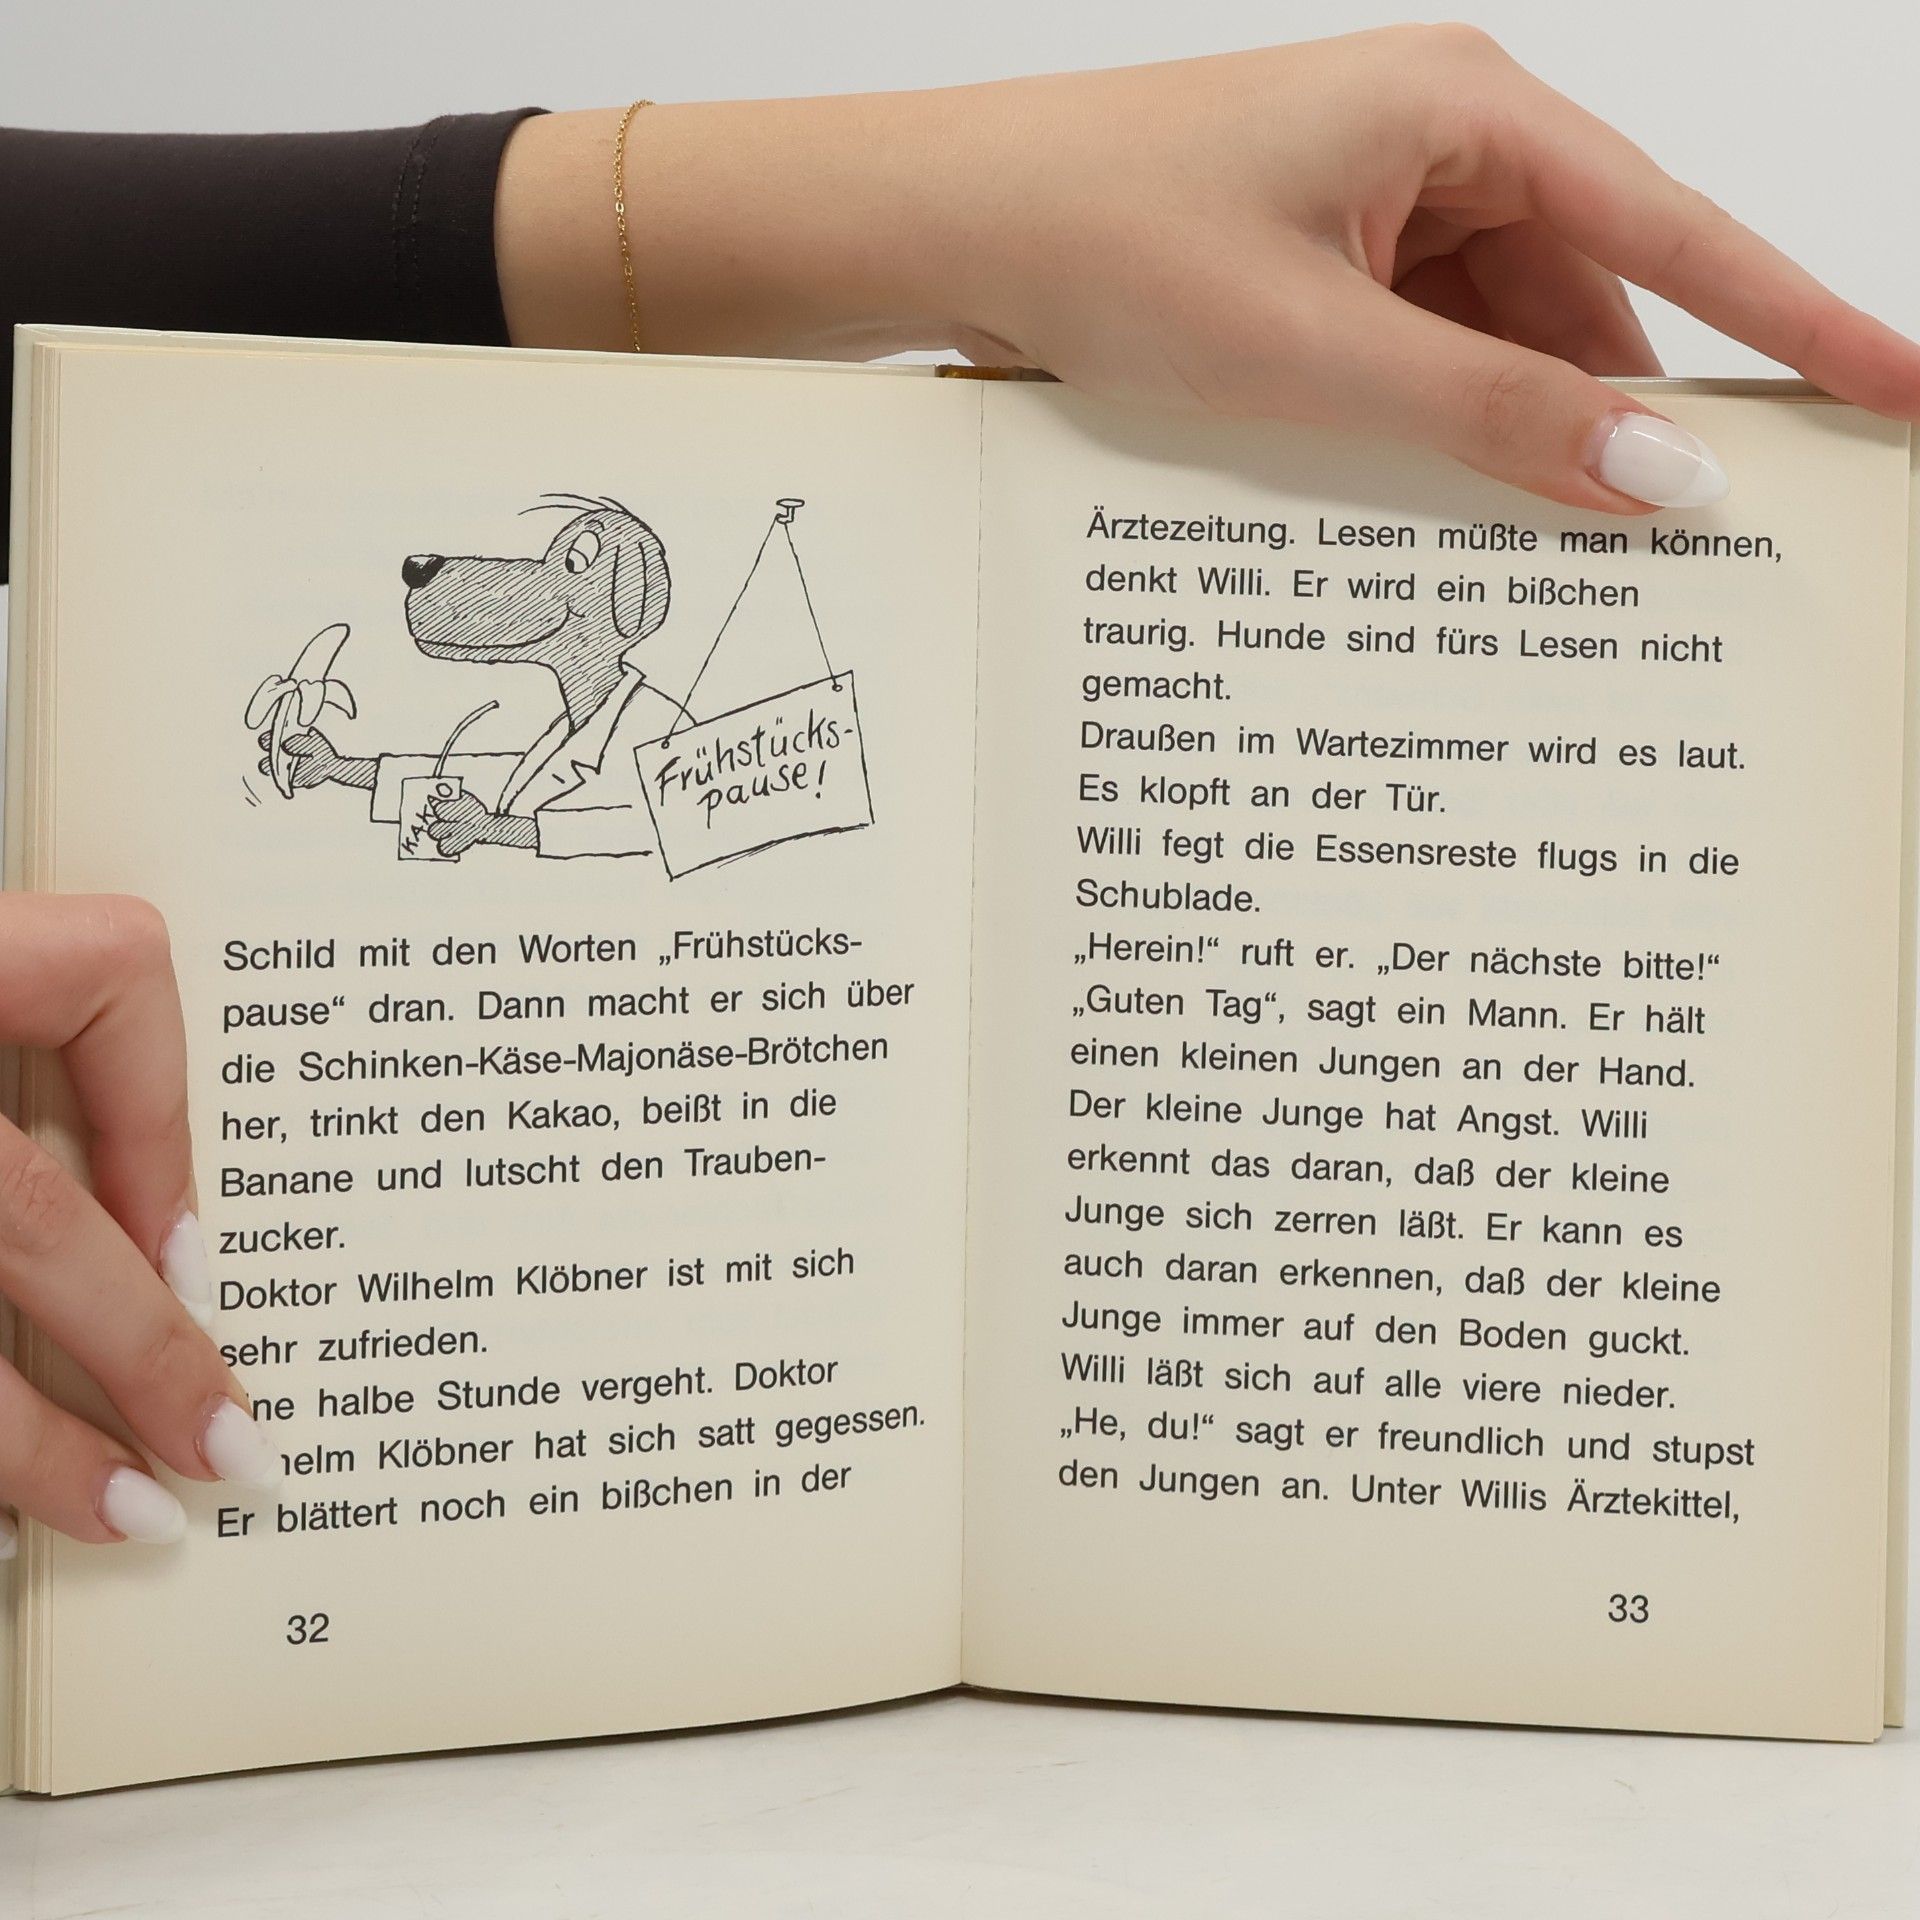 KAKAO
Frühstücks-
pause!
Schild mit den Worten „Frühstücks-
pause“ dran. Dann macht er sich über
die Schinken-Käse-Majonäse-Brötchen
her, trinkt den Kakao, beißt in die
Banane und lutscht den Trauben-
zucker.
Doktor Wilhelm Klöbner ist mit sich
sehr zufrieden.
halbe Stunde vergeht. Doktor
Klöbner hat sich satt gegessen.
Er blättert noch ein bißchen in der
32
Ärztezeitung. Lesen müßte man können,
denkt Willi. Er wird ein bißchen
traurig. Hunde sind fürs Lesen nicht
gemacht.
Draußen im Wartezimmer wird es laut.
Es klopft an der Tür.
Willi fegt die Essensreste flugs in die
Schublade.
„Herein!“ ruft er. „Der nächste bitte!“
„Guten Tag“, sagt ein Mann. Er hält
einen kleinen Jungen an der Hand.
Der kleine Junge hat Angst. Willi
erkennt das daran, daß der kleine
Junge sich zerren läßt. Er kann es
auch daran erkennen, daß der kleine
Junge immer auf den Boden guckt.
Willi läßt sich auf alle viere nieder.
„He, du!“ sagt er freundlich und stupst
den Jungen an. Unter Willis Ärztekittel,
33